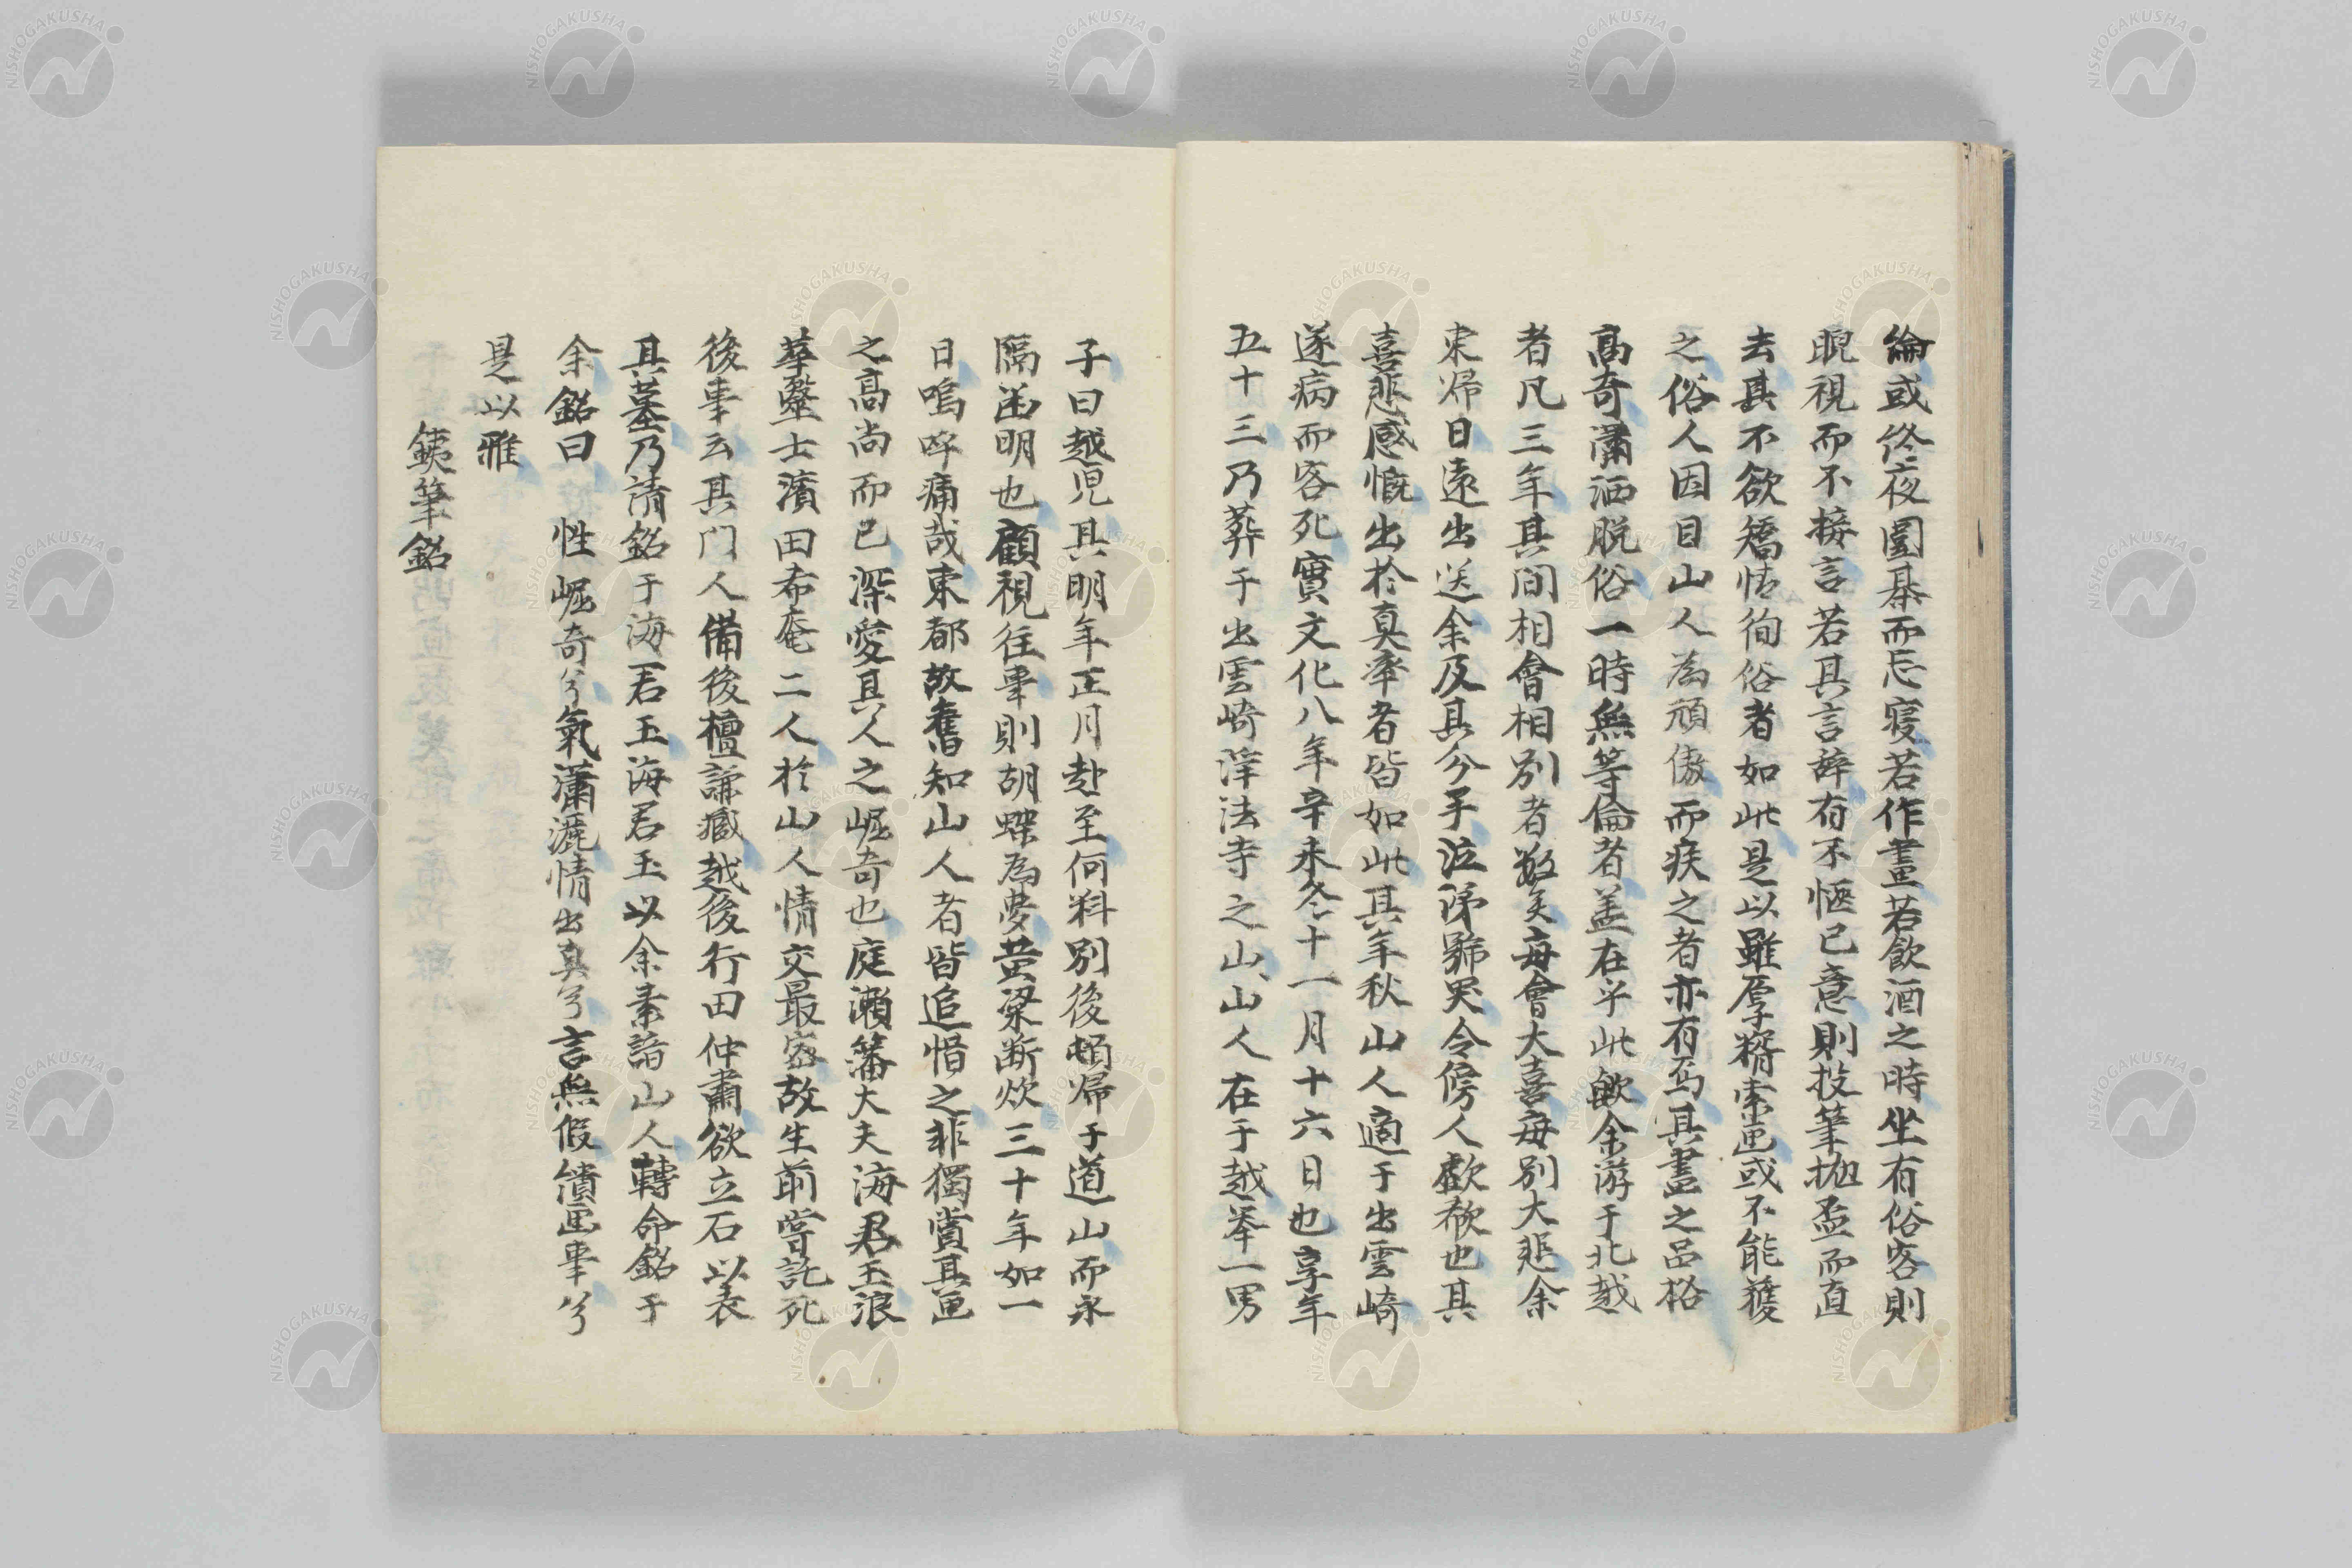 綸或終夜圍棊而忘寝若作畫若飲酒之時坐有俗客則
睨視而不接言若其言辞有不愜已意則投筆拋盃而直
去其不欲矯情徇俗者如此是以雖厚糈索画或不能獲
之俗人因目山人為頑傲而疾之者亦有焉其畫之品格
高奇瀟洒脱俗一時無等倫者盖在乎此歟余游于北越
者凡三年其間相會相別者数矣每會大喜每別大悲余
東帰日遠出送余及其分手泣涕號哭令傍人歔欷也其
喜悲感慨出於真率者皆如此其年秋山人適于出雲崎
遂病而客死實文化八年辛未冬十一月十六日也享年
五十三乃葬于出雲崎淨法寺之山山人在于越举一男
子曰越児其明年正月赴至何料別後頓帰于道山而永
隔函明也顧視往事則胡蝶為夢黄粱断炊三十年如一
日嗚呼痛哉東都故舊知山人者皆追惜之非獨賞其画
之高尚而已深愛其人之崛奇也庭瀬藩大夫海君玉浪
華毉士濱田希庵二人於山人情交最密故生前嘗託死
後事云其門人備後檀謙臧越後行田仲肅欲立石以表
其墓乃請銘于海君玉海君玉以余素諳山人轉命銘于
余銘曰 性崛奇兮氣瀟灑情出真兮言無假繢画事兮
是以雅
銕筆銘